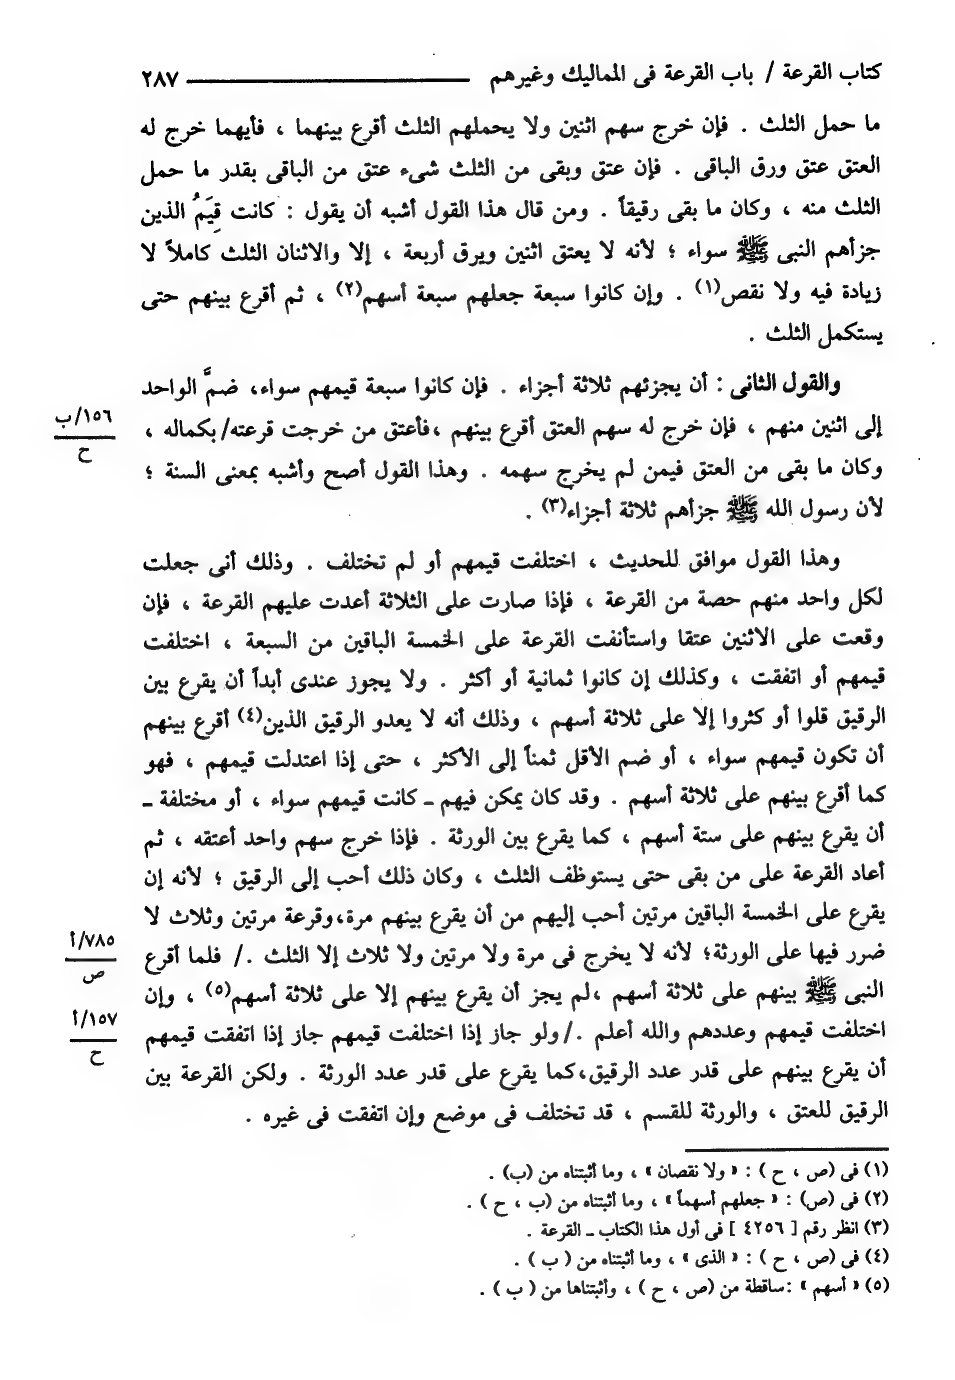 كتاب القرعة / باب القرعة فى المماليك وغيرهم ـــــــــ ٢٨٧
ما حمل الثلث . فإن خرج سهم اثنين ولا يحملهم الثلث أقرع بينهما ، فأيهما خرج له
العتق عتق ورق الباقى . فإن عتق وبقى من الثلث شىء عتق من الباقى بقدر ما حمل
الثلث منه ، وكان ما بقى رقيقاً . ومن قال هذا القول أشبه أن يقول : كانت قِيَمُ الذين
جزأهم النبى ﷺ سواء ؛ لأنه لا يعتق اثنين ويرق أربعة ، إلا والاثنان الثلث كاملاً لا
زيادة فيه ولا نقص(١) . وإن كانوا سبعة جعلهم سبعة أسهم(٢) ، ثم أقرع بينهم حتى
يستكمل الثلث .
والقول الثانى : أن يجزئهم ثلاثة أجزاء . فإن كانوا سبعة قيمهم سواء، ضمَّ الواحد
إلى اثنين منهم ، فإن خرج له سهم العتق أقرع بينهم ،فأعتق من خرجت قرعته/ بكماله ،
١٥٦/ب
ح
وكان ما بقى من العتق فيمن لم يخرج سهمه . وهذا القول أصح وأشبه بمعنى السنة ؛
لأن رسول الله ﷺ جزأهم ثلاثة أجزاء(٣) .
وهذا القول موافق للحديث ، اختلفت قيمهم أو لم تختلف . وذلك أنى جعلت
لكل واحد منهم حصة من القرعة ، فإذا صارت على الثلاثة أعدت عليهم القرعة ، فإن
وقعت على الاثنين عتقا واستأنفت القرعة على الخمسة الباقين من السبعة ، اختلفت
قيمهم أو اتفقت ، وكذلك إن كانوا ثمانية أو أكثر . ولا يجوز عندى أبداً أن يقرع بين
الرقيق قلوا أو كثروا إلا على ثلاثة أسهم ، وذلك أنه لا يعدو الرقيق الذين(٤) أقرع بينهم
أن تكون قيمهم سواء ، أو ضم الأقل ثمناً إلى الأكثر ، حتى إذا اعتدلت قيمهم ، فهو
كما أقرع بينهم على ثلاثة أسهم . وقد كان يمكن فيهم ـ كانت قيمهم سواء ، أو مختلفة ـ
أن يقرع بينهم على ستة أسهم ، كما يقرع بين الورثة . فإذا خرج سهم واحد أعتقه ، ثم
أعاد القرعة على من بقى حتى يستوظف الثلث ، وكان ذلك أحب إلى الرقيق ؛ لأنه إن
يقرع على الخمسة الباقين مرتين أحب إليهم من أن يقرع بينهم مرة،وقرعة مرتين وثلاث لا
ضرر فيها على الورثة؛ لأنه لا يخرج فى مرة ولا مرتين ولا ثلاث إلا الثلث ./ فلما أقرع
٧٨٥/أ
ص
النبى ﷺ بينهم على ثلاثة أسهم ،لم يجز أن يقرع بينهم إلا على ثلاثة أسهم(٥) ، وإن
اختلفت قيمهم وعددهم والله أعلم ./ ولو جاز إذا اختلفت قيمهم جاز إذا اتفقت قيمهم
١٥٧/أ
ح
أن يقرع بينهم على قدر عدد الرقيق،كما يقرع على قدر عدد الورثة . ولكن القرعة بين
الرقيق للعتق ، والورثة للقسم ، قد تختلف فى موضع وإن اتفقت فى غيره .
(١) فى (ص ، ح ) : « ولا نقصان » ، وما أثبتناه من (ب) .
(٢) فى (ص) : « جعلهم أسهماً » ، وما أثبتناه من (ب ، ح ) .
(٣) انظر رقم [ ٤٢٥٦ ] فى أول هذا الكتاب ـ القرعة .
(٤) فى (ص ، ح ) : « الذى » ، وما أثبتناه من ( ب ) .
(٥) « أسهم » :ساقطة من (ص ، ح ) ، وأثبتناها من ( ب ) .